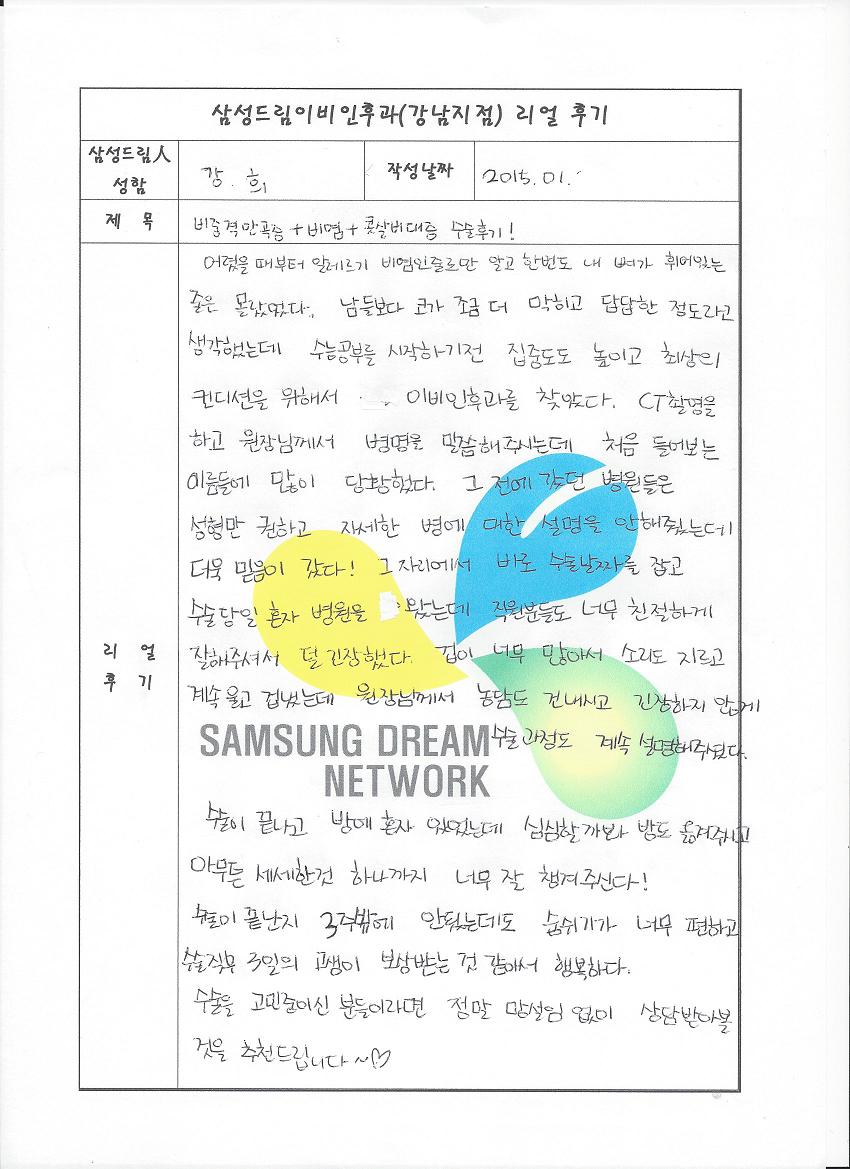 삼성드림이비인후과(강남지점) 리얼 후기
삼성드림人
성함
강. 희
작성날짜
2015.01.
제 목
비중격만곡증 + 비염 + 콧살비대증 수술후기!
어렸을 때부터 알레르기 비염인줄로만 알고 한번도 내 뼈가 휘어있는
줄은 몰랐었다. 남들보다 코가 조금 더 막히고 답답한 정도라고
생각했는데 수능공부를 시작하기전 집중도도 높이고 최상의
컨디션을 위해서 이비인후과를 찾았다. CT촬영을
하고 원장님께서 병명을 말씀해주시는데 처음 들어보는
이름들에 많이 당황했다. 그 전에 갔던 병원들은
성형만 권하고 자세한 병에 대한 설명을 안해줬는데
더욱 믿음이 갔다! 그자리에서 바로 수술날짜를 잡고
수술당일 혼자 병원을 왔는데 직원분들도 너무 친절하게
잘해주셔서 덜 긴장했다. 겁이 너무 많아서 소리도 지르고
계속 울고 겁냈는데 원장님께서 농담도 건내시고 긴장하지 않게
수술과정도 계속 설명해주셨다.
리 얼
후 기
SAMSUNG DREAM
NETWORK
수술이 끝나고 방에 혼자 있었는데 심심할까봐 방도 옮겨주시고
아무튼 세세한것 하나까지 너무 잘 챙겨주신다!
수술이 끝난지 3주밖에 안됐는데도 숨쉬기가 너무 편하고
수술직후 3일의 고생이 보상받는 것 같아서 행복하다.
수술을 고민중이신 분들이라면 정말 망설임 없이 상담받아볼
것을 추천드립니다~♡